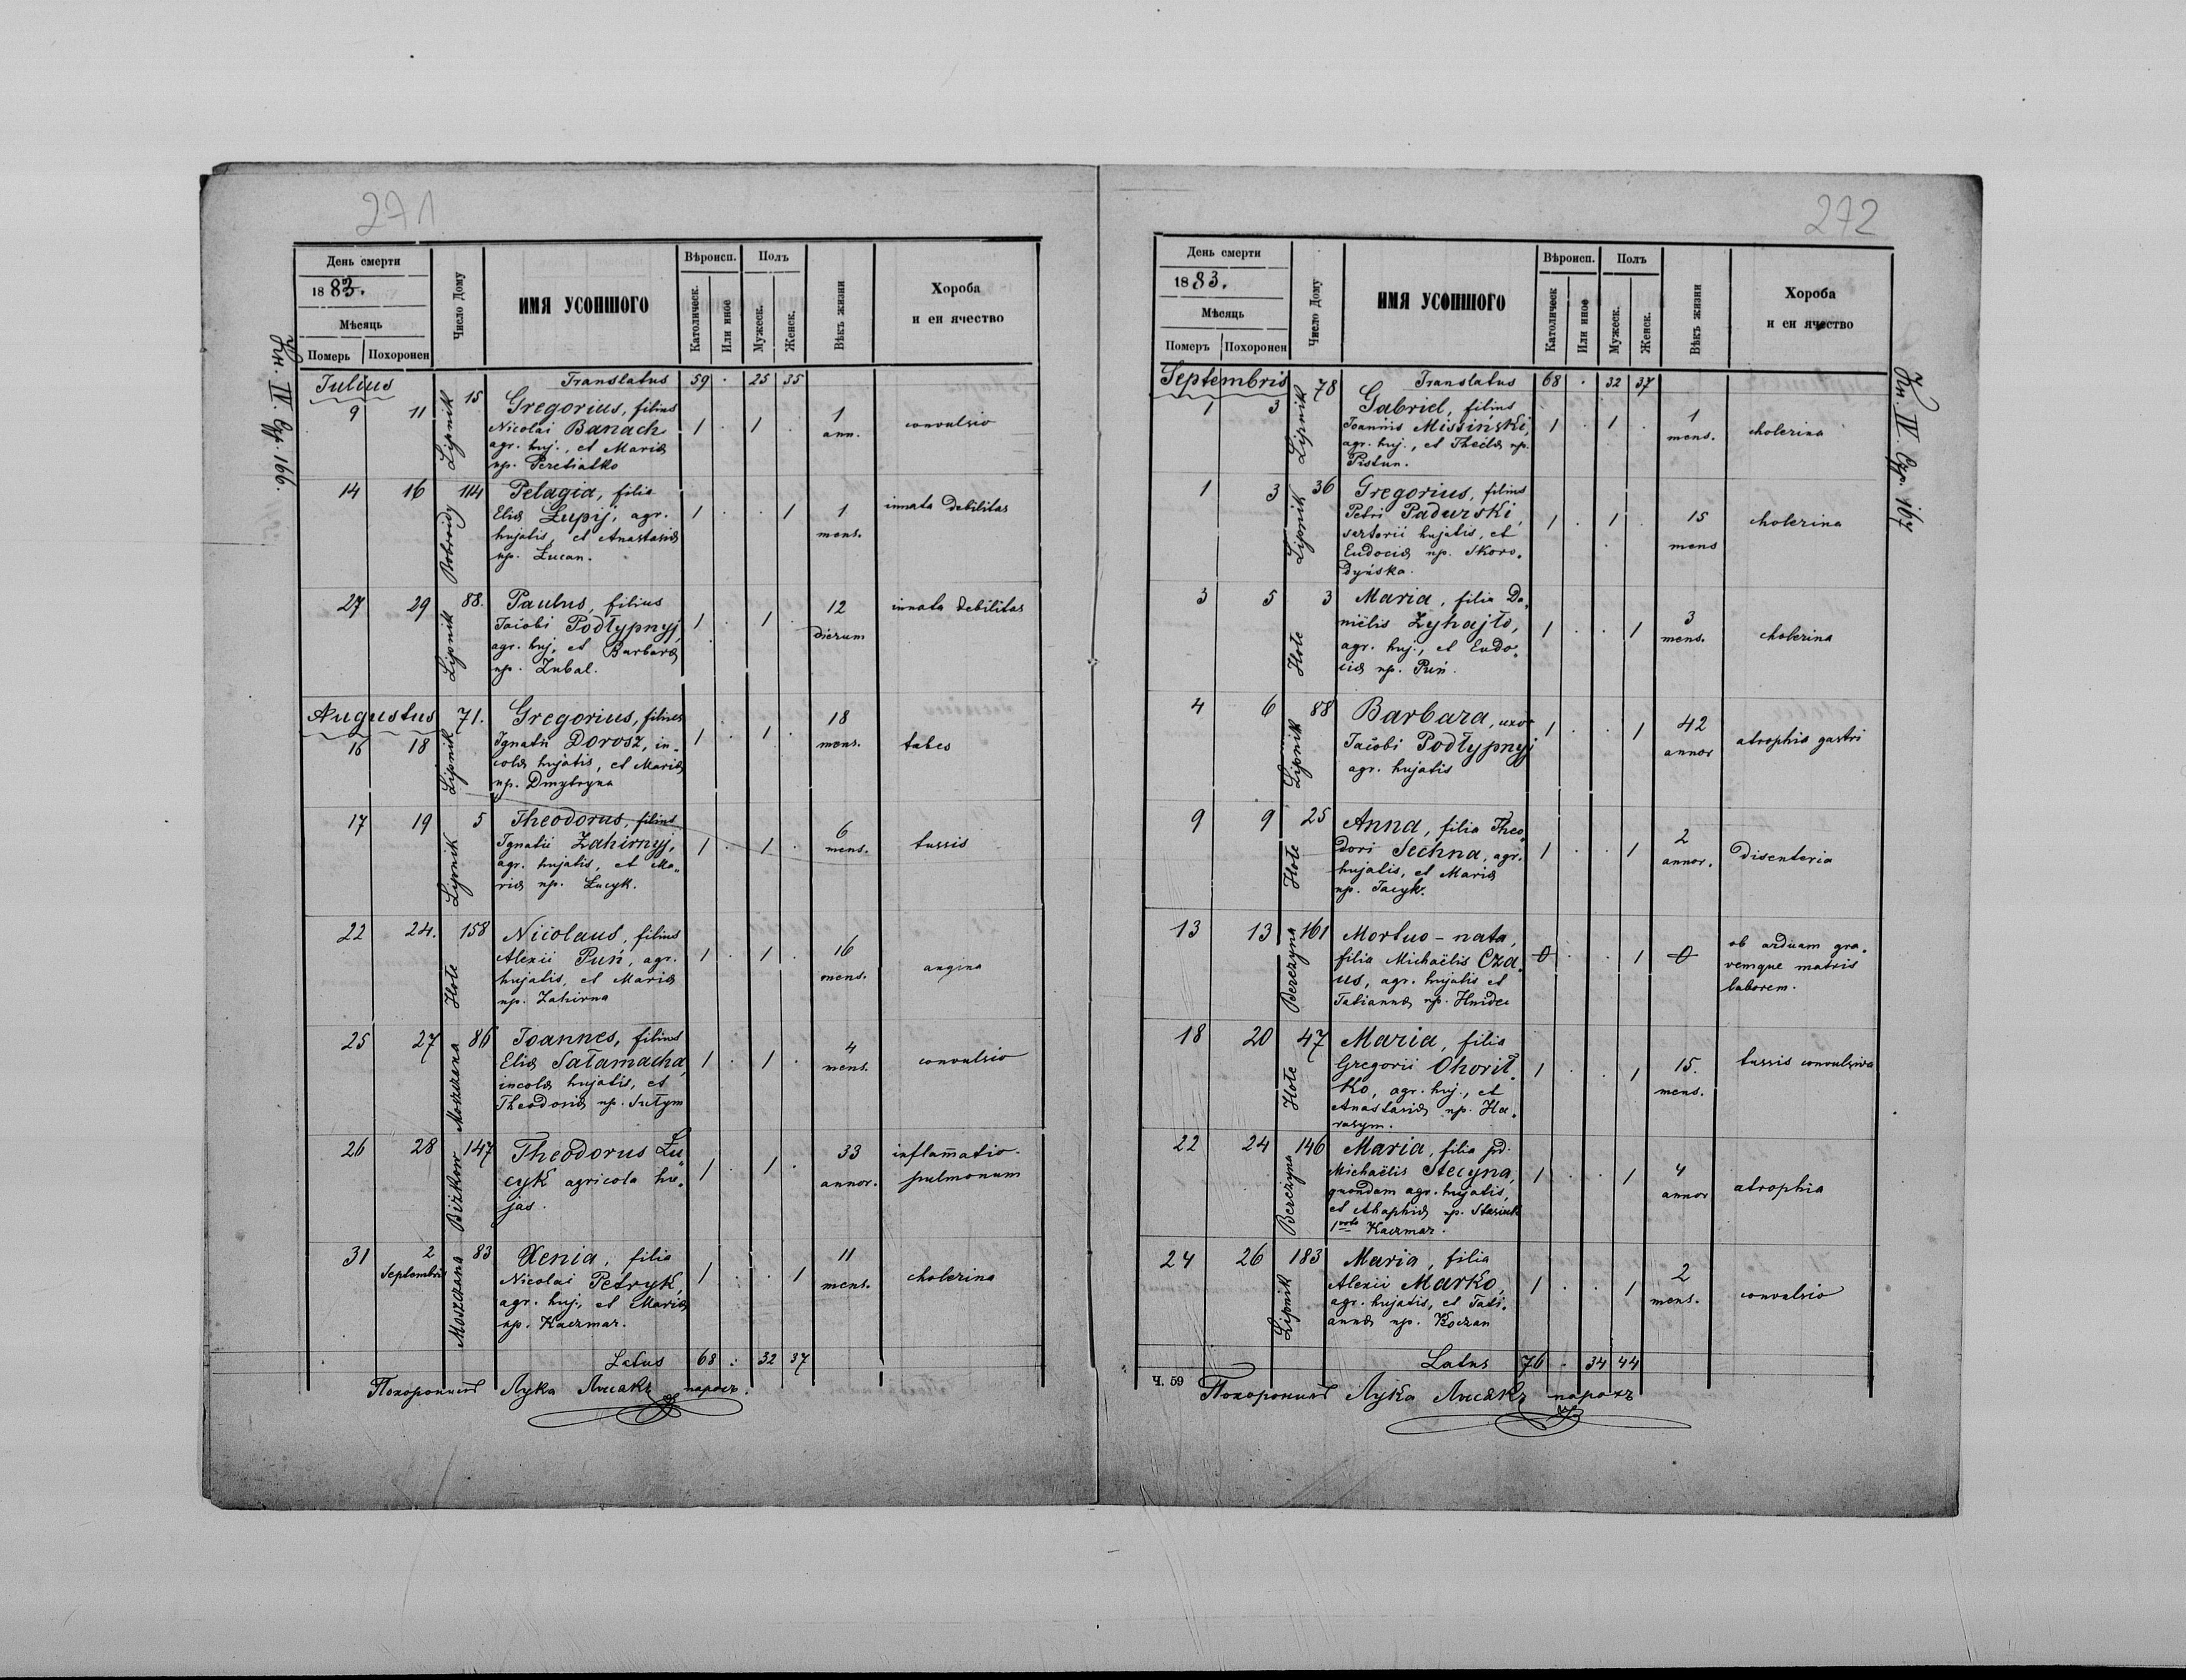 271
Томъ IV. Стр. 166.
День смерти
1883.
Мѣсяць
Померъ Похоронен
Число Дому
ИМЯ УСОПШОГО
Вѣроисп.
Католическ.
Или иное
Полъ
Мужеск.
Женск.
Вѣкъ жизни
Хороба
и еи ячество
Julius
Translatus 59 . 25 35
9 11 Lipnik 15 Gregorius, filius 1 . 1 . 1 ann. convulsio
Nicolai Banach
agr. huj., et Mariæ
np. Peretiatko
14 16 Bobroidy 114 Pelagia, filia 1 . . 1 1 mens. innata debilitas
Eliæ Łupij, agr.
hujatis, et Anastasiæ
np. Łucan.
27 29 Lipnik 88. Paulus, filius 1 . 1 . 12 dierum innata debilitas
Jacobi Podłypnyj,
agr. huj., et Barbaræ
np. Zubal.
Augustus
16 18 Lipnik 71. Gregorius, filius 1 . 1 . 18 mens. tabes
Ignatii Dorosz, in„
colæ hujatis, et Mariæ
np. Dmytryna
17 19 Lipnik 5 Theodorus, filius 1 . 1 . 6 mens. tussis
Ignatii Zahirnyj,
agr. hujatis, et Ma„
riæ np. Łucyk.
22 24. Hołe 158 Nicolaus, filius 1 . 1 . 16 mens. angina
Alexii Puń, agr.
hujatis, et Mariæ
np. Zahirna
25 27 Moszczana 86 Joannes, filius 1 . 1 . 4 mens. convulsio
Eliæ Sałamacha,
incolæ hujatis, et
Theodosiæ np. Sułym
26 28 Bizkow 147 Theodorus Łu„ 1 . 1 . 33 annor. inflam̄atio
cyk agricola hu„ pulmonum
jas.
31 2 Septembris Moszczana 83 Xenia, filia 1 . . 1 11 mens. cholerina
Nicolai Petryk,
agr. huj., et Mariæ
np. Kaczmar.
Latus 68 . 32 37
Похоронилъ Лука Лисакъ парохъ.
272
Томъ IV. Стр. 167
День смерти
1883.
Мѣсяць
Померъ Похоронен
Число Дому
ИМЯ УСОПШОГО
Вѣроисп.
Католическ
Или иное
Полъ
Мужеск.
Женск.
Вѣкъ жизни
Хороба
и еи ячество
Septembris
Translatus 68 . 32 37
1 3 Lipnik 78 Gabriel, filius 1 . 1 . 1 mens. cholerina
Joannis Missiński,
agr. huj., et Theclæ np.
Pistun.
1 3 Lipnik 36 Gregorius, filius 1 . 1 . 15 mens cholerina
Petri Padurski,
sartorii hujatis, et
Eudociæ np. Skoro„
dyńska.
3 5 Hołe 3 Maria, filia Da„ 1 . . 1 3 mens. cholerina
niëlis Zyhajło,
agr. huj., et Eudo„
ciæ np. Puń.
4 6 Lipnik 88 Barbara, uxor 1 . . 1 42 annor atrophia gastri
Jacobi Podłypnyj
agr. hujatis
9 9 Hołe 25 Anna, filia Theo„ 1 . . 1 2 annor. disenteria
dori Sechna, agr.
hujatis, et Mariæ
np. Jacyk.
13 13 Berezyna 161 Mortuo-nata, 0 . . 1 0 ob arduam gra„
filia Michaëlis Cza„ vemque matris
us, agr. hujatis et laborem.
Tatiannæ np. Hnidec
18 20 Hołe 47 Maria, filia 1 . . 1 15. mens. tussis convulsiva
Gregorii Ohorił„
ko, agr. huj., et
Anastasiæ np. Ha„
rasym.
22 24 Berezyna 146 Maria, filia pd. 1 . . 1 4 annor atrophia
Michaëlis Stecyna,
quondam agr. hujatis,
et Ahaphiæ np. Stasiuk
1voto Kaczmar.
24 26 Lipnik 183 Maria, filia 1 . . 1 2 mens. convulsio
Alexii Marko,
agr. hujatis, et Tati„
annæ np. Koczan
Latus 76 . 34 44
Ч. 59
Похоронилъ Лука Лисакъ парохъ